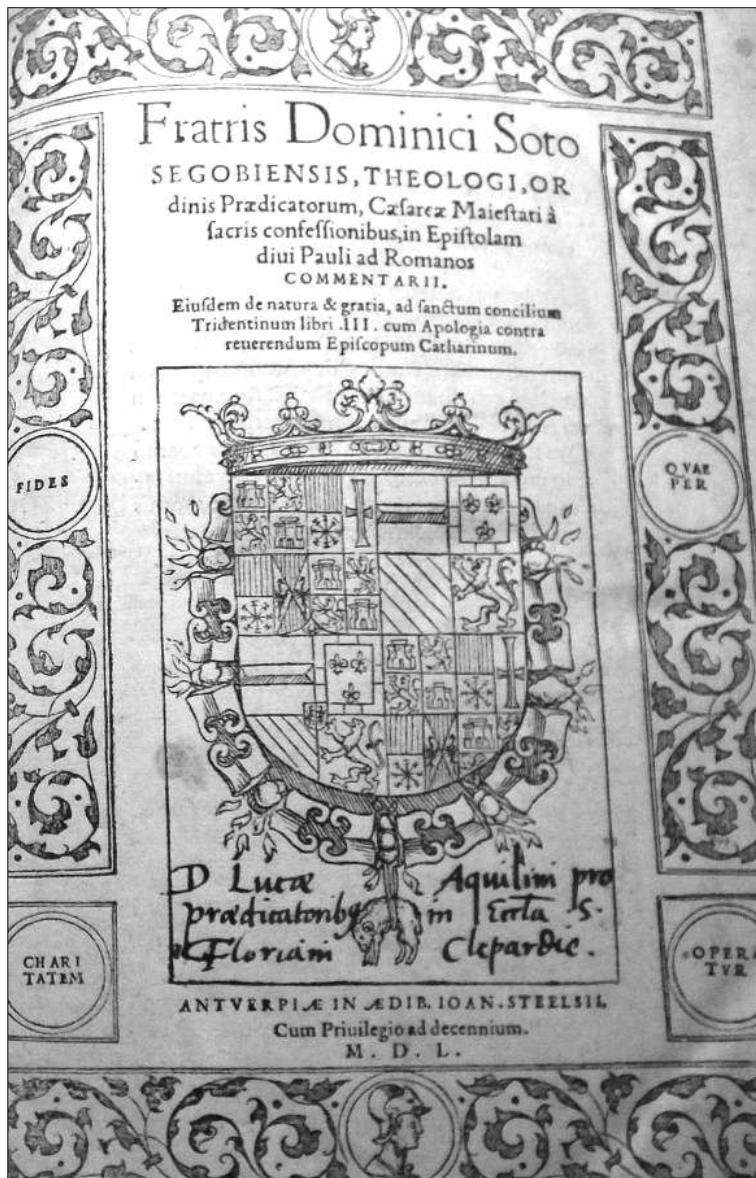 Fratris Dominici Soto
SEGOBIENSIS, THEOLOGI, OR
dinis Prædicatorum, Cæſareæ Maieſtati à
ſacris confeſſionibus, in Epiſtolam
diui Pauli ad Romanos
COMMENTARII.
Eiuſdem de natura & gratia, ad ſanctum concilium
Tridentinum libri .III. cum Apologia contra
reuerendum Epiſcopum Catharinum.
FIDES
QVAE
PER
D Lucæ Aquilini pro
prædicatoribꝰ in Eccla S.
Floriani Clepardie.
CHARI
TATEM
OPERA
TVR
ANTVERPIÆ IN ÆDIB. IOAN. STEELSII.
Cum Priuilegio ad decennium.
M. D. L.